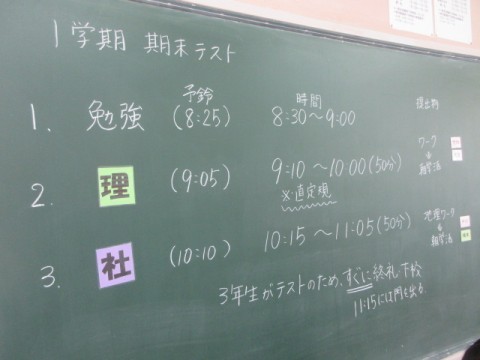 1学期 期末テスト
予鈴 時間 提出物
1. 勉強 (8:25) 8:30〜9:00
ワーク
2. 理 (9:05) 9:10〜10:00(50分)
※直定規
地理ワーク
3. 社 (10:10) 10:15〜11:05(50分)
3年生がテストのため、すぐに終礼、下校
11:15には門を出る